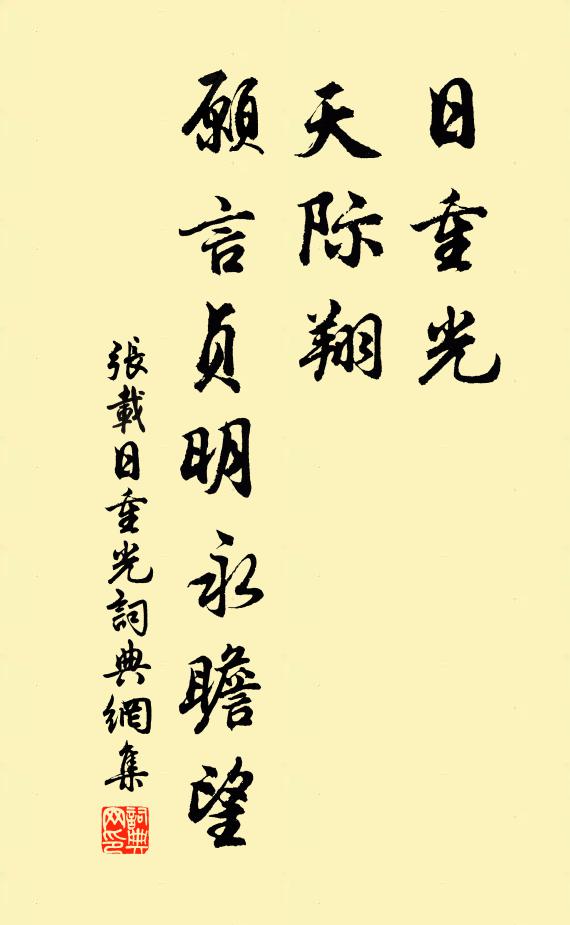 日重光
天际翔
願言貞明永瞻望
張載日重光詞典網集
詞典
网印